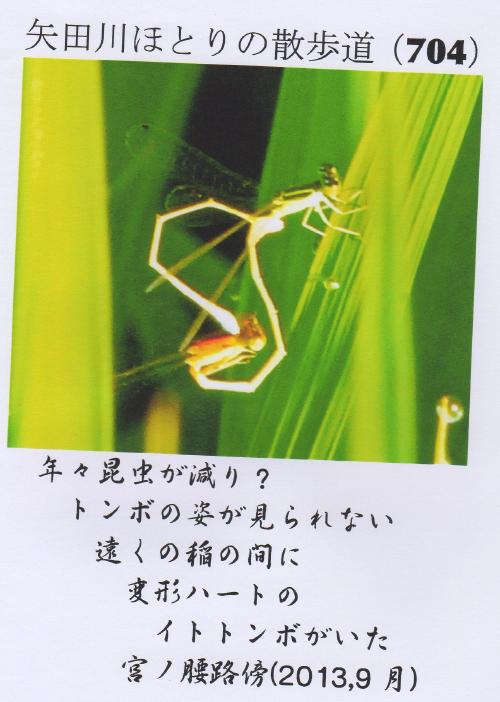 矢田川ほとりの散歩道（704）
年々昆虫が減り？
トンボの姿が見られない
遠くの稲の間に
変形ハートの
イトトンボがいた
宮ノ腰路傍(2013,9 月)